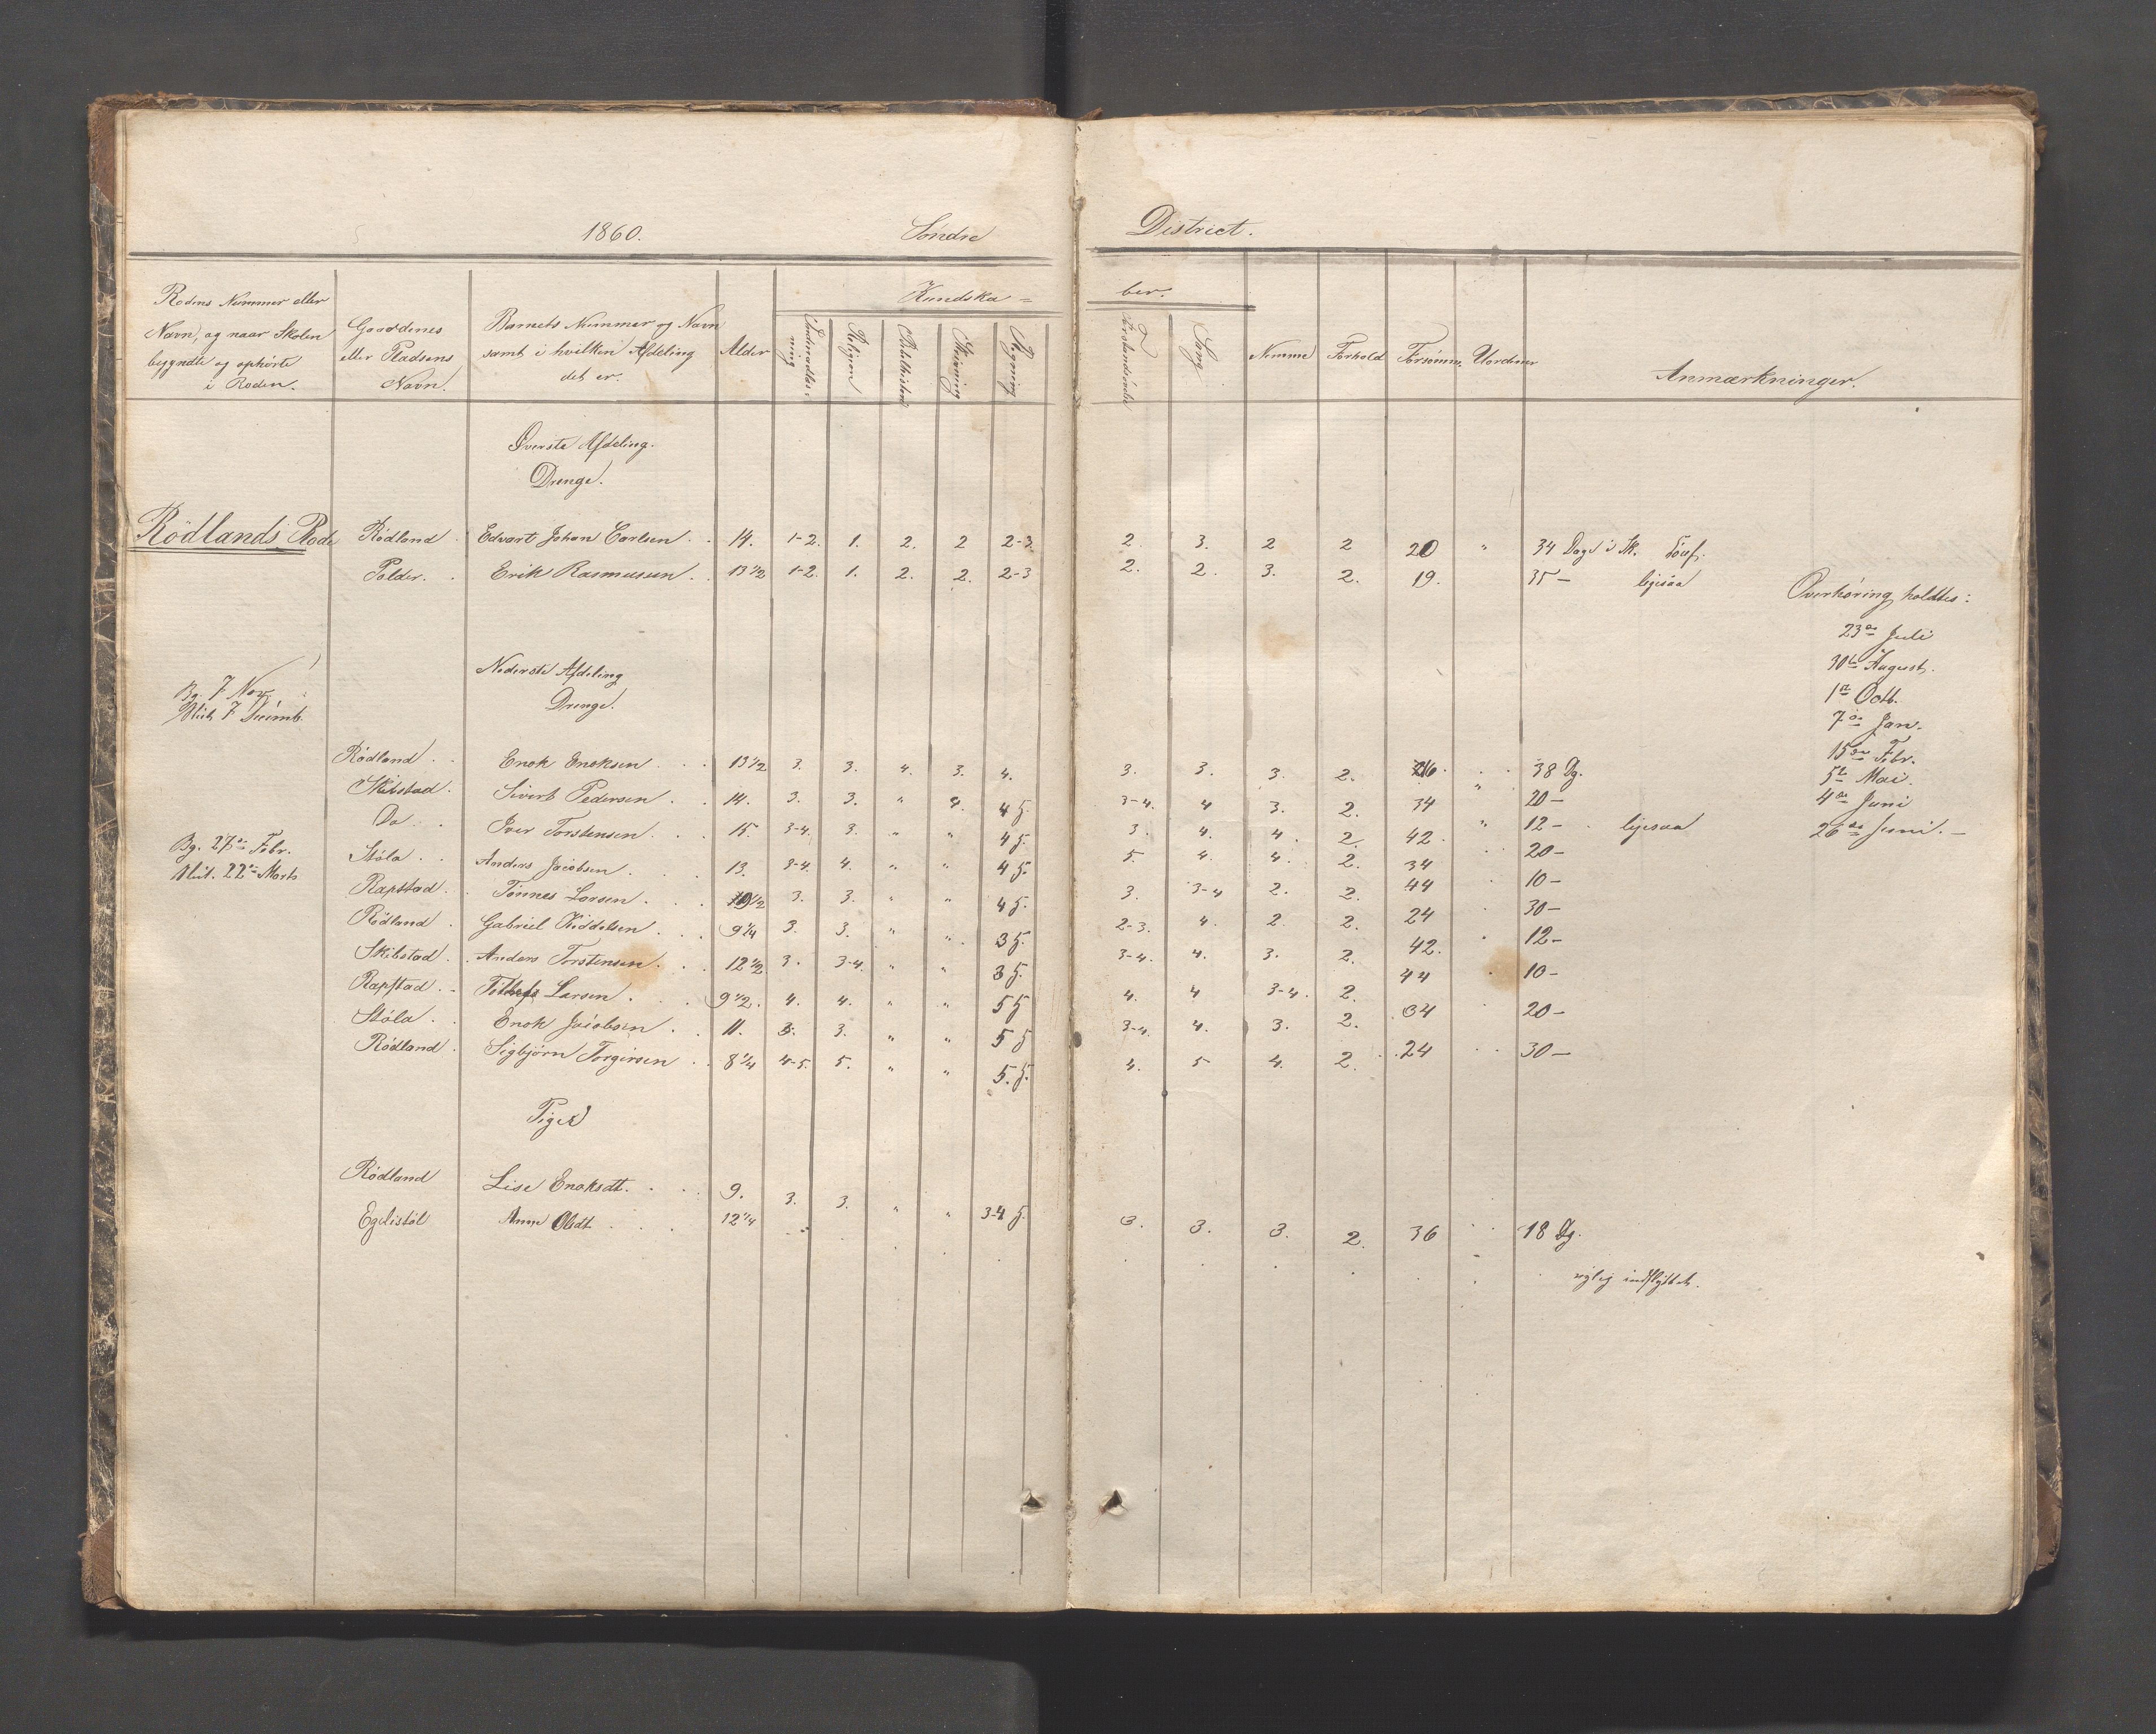 1860. Söndre District.
Rodens Nummer eller
Navn, og naar Skolen
begyndte og ophörte
i Roden.
Gaardenes
eller Pladsens
Navn.
Barnets Nummer og Navn
samt i hvilken Afdeling
det er.
Alder
Kundska = ber.
Indenadlæs=
ning
Religion
Bibelhistorie
Skrivning
Regning
Forstandsövelse
Sang
Nemme
Forhold
Forsömm.
Uordner
Anmærkninger.
Øverste Afdeling.
Drenge.
Rödlands Rode Rödland . Edvart Johan Carlsen . . 14. 1-2. 1. 2. 2 2-3. 2. 3. 2 2 20 " 34 Dage i Sk.
Polder. . Erik Rasmussen . . 13 1/2 1-2. 1. 2. 2. 2-3 2. 2. 3. 2. 19. 35 - ligesaa
Overhøring holdtes:
23de Juli
30te August.
1ste Octb.
7de Jan.
15de Febr.
5te Mai.
4de Juni
26de Juni. -
Nederste Afdeling
Drenge.
Bg. 7 Nov.
Slut. 7 Decemb.
Rödland . . Enok Enoksen . . . 13 1/2 3. 3. 4. 3. 4. 3. 3. 3. 2. 26 . . 38 Dg.
Skibstad . Sivert Pedersen . . 14. 3. 3. " 4. 4 5. 3-4. 4 3. 2. 34 " 20 -
Do . . Iver Torstensen . . . 15. 3-4. 3. " " 4 5. 3. 4. 4. 2. 42. " 12 - ligesaa
Bg. 27de Febr.
Slut. 22de Marts
Stöla . . Anders Jacobsen . . . 13. 3-4. 4. " " 4 5. 5. 4. 4. 2. 34 . 20 -
Rapstad . Tönnes Larsen . . . 10 1/2 3. 3. " " 4 5. 3. 3-4 2. 2. 44 . 10 -
Rödland . Gabriel Kiddelsen . . . 9 1/4 3. 3. " " 3 5. 2-3. 4. 2. 2. 24 30 -
Skibstad . . Anders Torstensen . . . 12 1/2 3. 3-4. " " 3 5. 3-4. 4. 3. 2. 42. . 12 -
Rapstad . Larsen . . . 9 1/2. 4. 4. " " 5 5 4. 4 3-4. 2. 44 . 10 -
Stöla . . Enok Jacobsen . . 11. 3. 3. " " 5 5 3-4. 4. 3. 2. 34 . 20 -
Rödland . Sigbjörn Torgirsen . . 8 1/4 4-5. 5. " " 5. 5. 4. 5 4. 2. 24 . . 30 -
Piger
Rödland Lise Enoksdt. . . . 9. 3. 3. " " 3-4 5. 3. 3. 3. 2. 36 . . 18 Dg.
Egelistöl Anne Olsdt . . . 12 1/4 indflyttet.